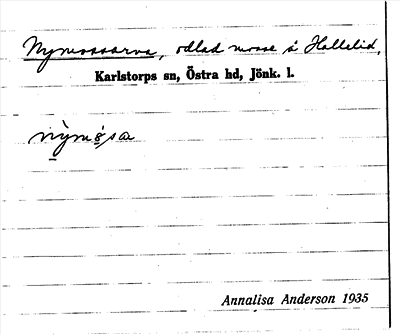 Nymossarna, odlad mosse å Hallelid,
Karlstorps sn, Östra hd, Jönk. l.
nỳmòsa
Annalisa Anderson 1935